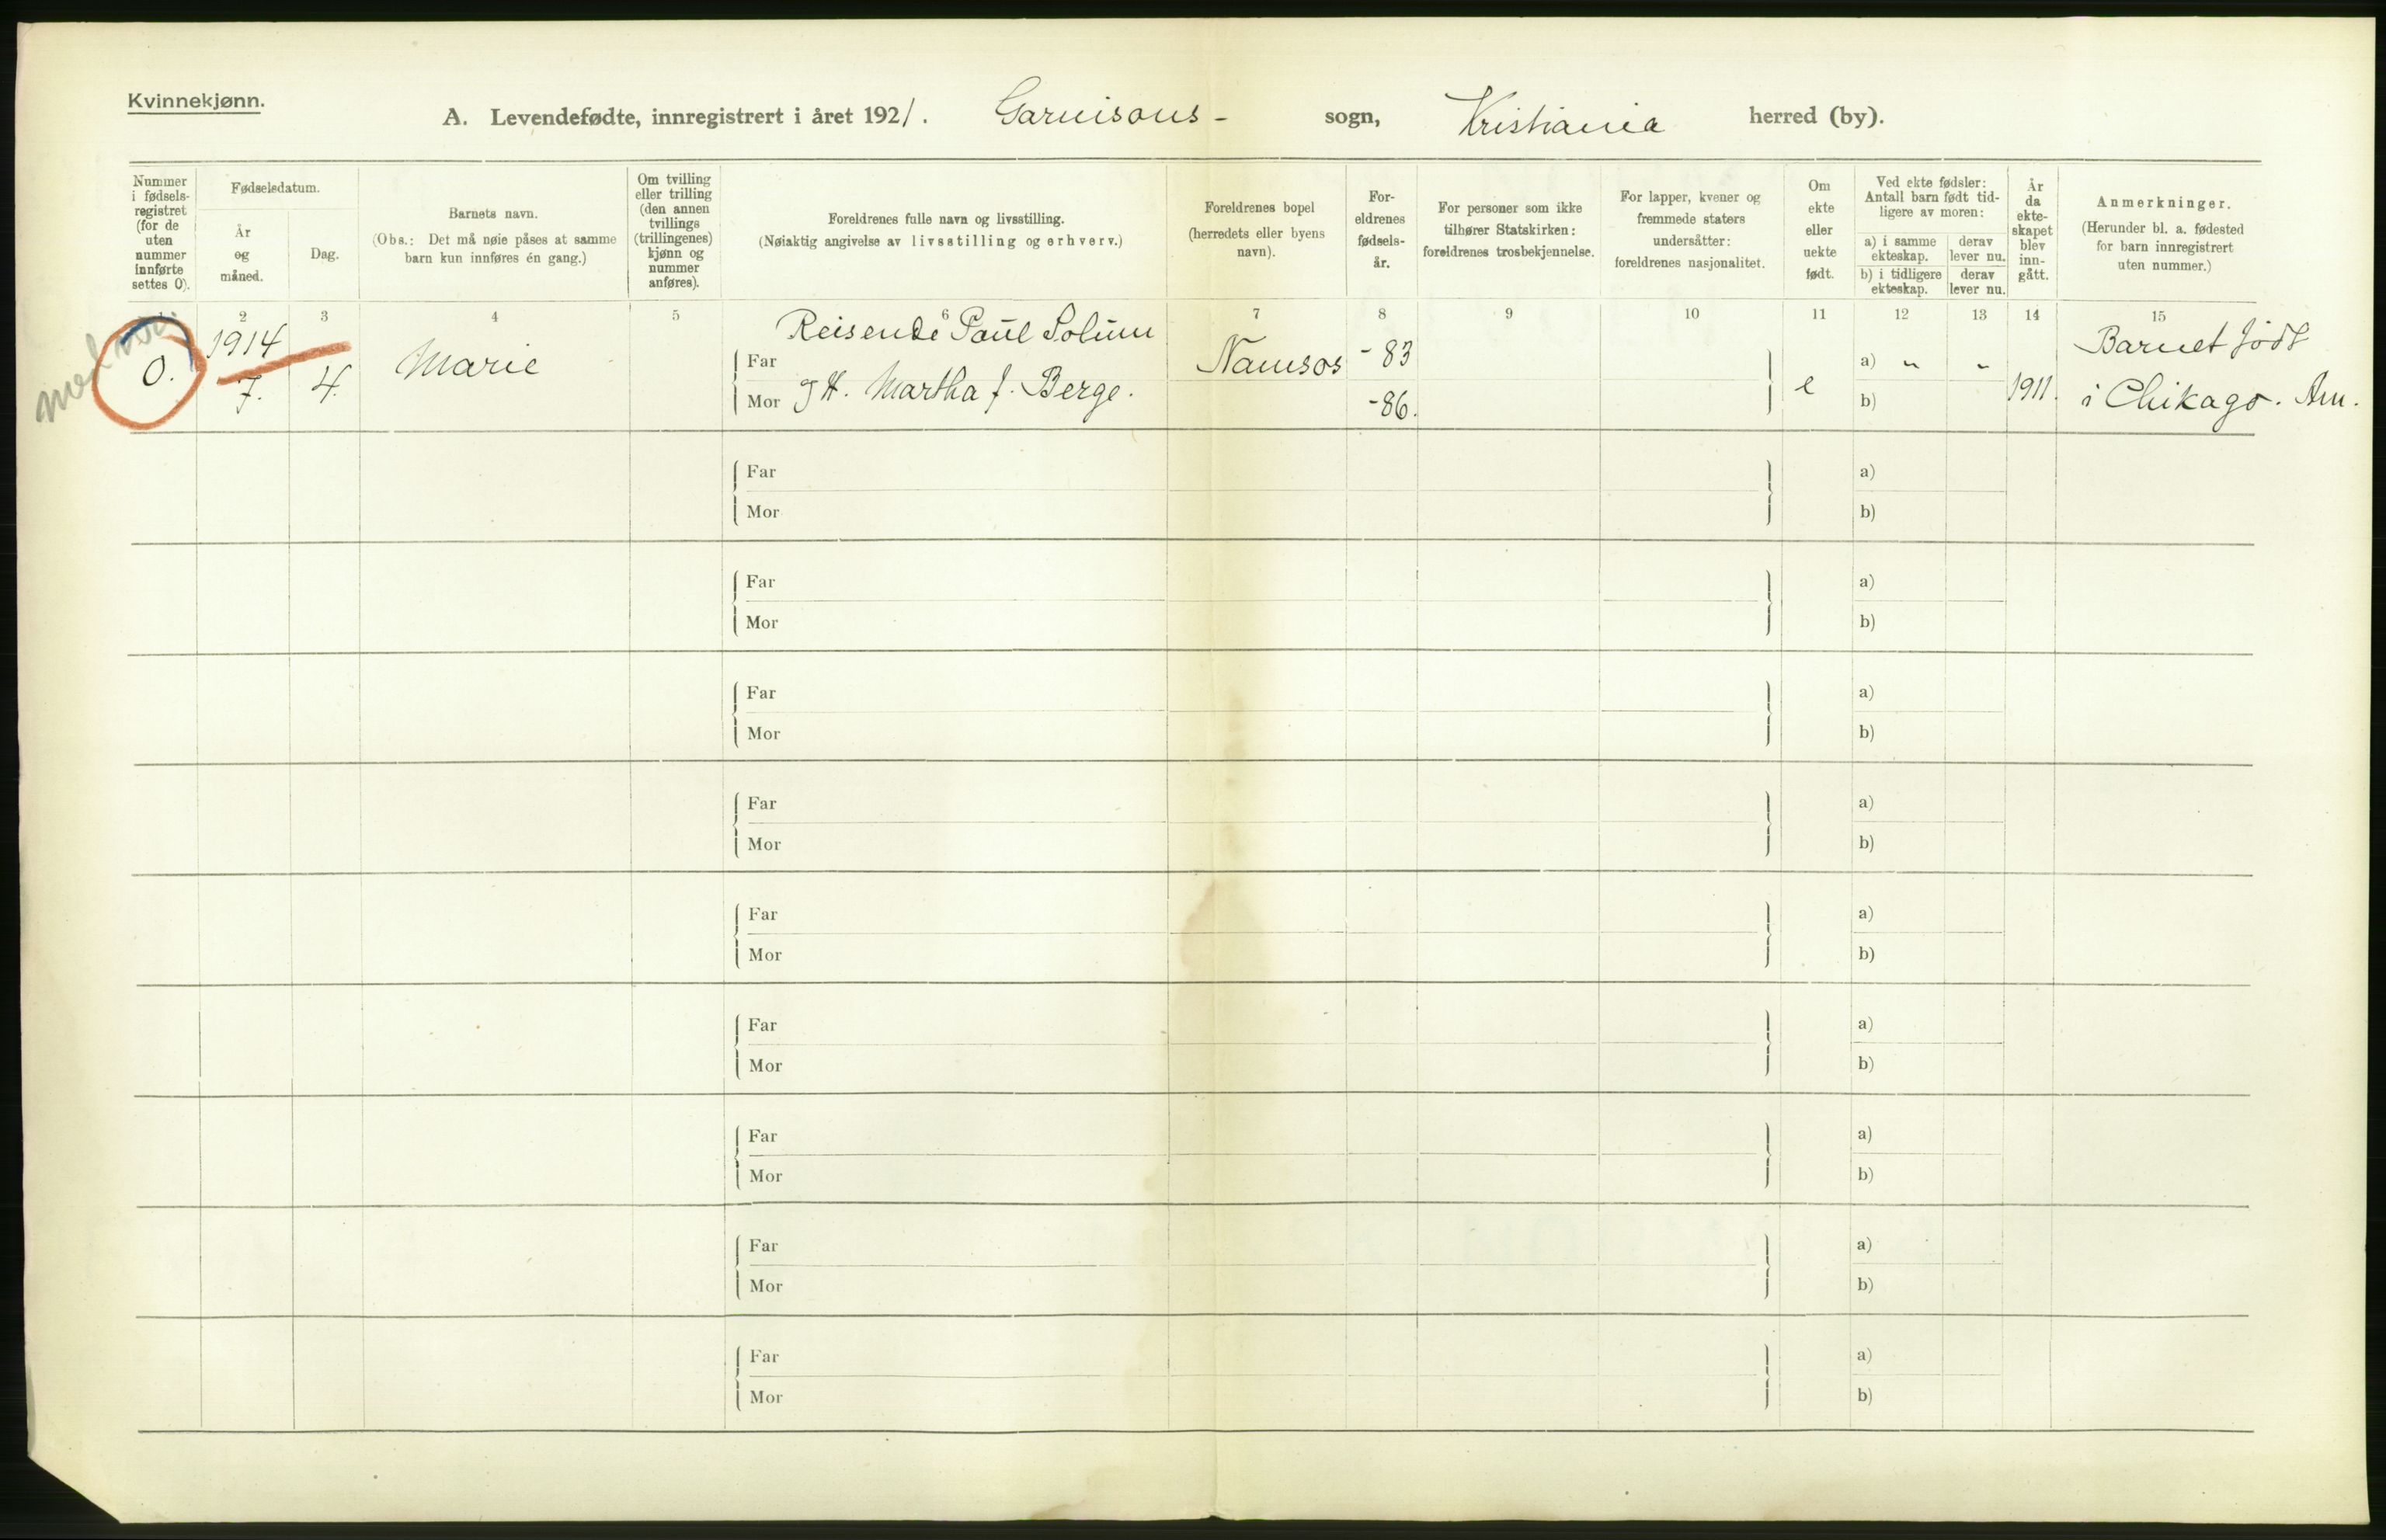 Kvinnekjønn.
A. Levendefødte, innregistrert i året 1921. Garnisons- sogn, Kristiania herred (by).
Nummer
i fødsels-
registret
(for de
uten
nummer
innførte
settes 0).
Fødselsdatum.
År
og
måned.
Dag.
Barnets navn.
(Obs.: Det må nøie påses at samme
barn kun innføres én gang.)
Om tvilling
eller trilling
(den annen
tvillings
(trillingenes)
kjønn og
nummer
anføres).
Foreldrenes fulle navn og livsstilling.
(Nøiaktig angivelse av livsstilling og erhverv.)
Foreldrenes bopel
(herredets eller byens
navn).
For-
eldrenes
fødsels-
år.
For personer som ikke
tilhører Statskirken:
foreldrenes trosbekjennelse.
For lapper, kvener og
fremmede staters
undersåtter:
foreldrenes nasjonalitet.
Om
ekte
eller
uekte
født.
Ved ekte fødsler:
Antall barn født tid-
ligere av moren:
a) i samme
ekteskap.
derav
lever nu.
b) i tidligere
ekteskap.
derav
lever nu.
År
da
ekte-
skapet
blev
inn-
gått.
Anmerkninger.
(Herunder bl. a. fødested
for barn innregistrert
uten nummer.)
1 2 3 4 5 6 7 8 9 10 11 12 13 14 15
med
0.
1914
7. 4.
Marie
Reisende Paul Solum
Far
Mor J H. Martha f. Berge.
Namsos
- 83
- 86.
e
a) " "
b)
1911.
Barnet født
i Chikago. Am.
Far a)
Mor b)
Far a)
Mor b)
Far a)
Mor b)
Far a)
Mor b)
Far a)
Mor b)
Far a)
Mor b)
Far a)
Mor b)
Far a)
Mor b)
Far a)
Mor b)